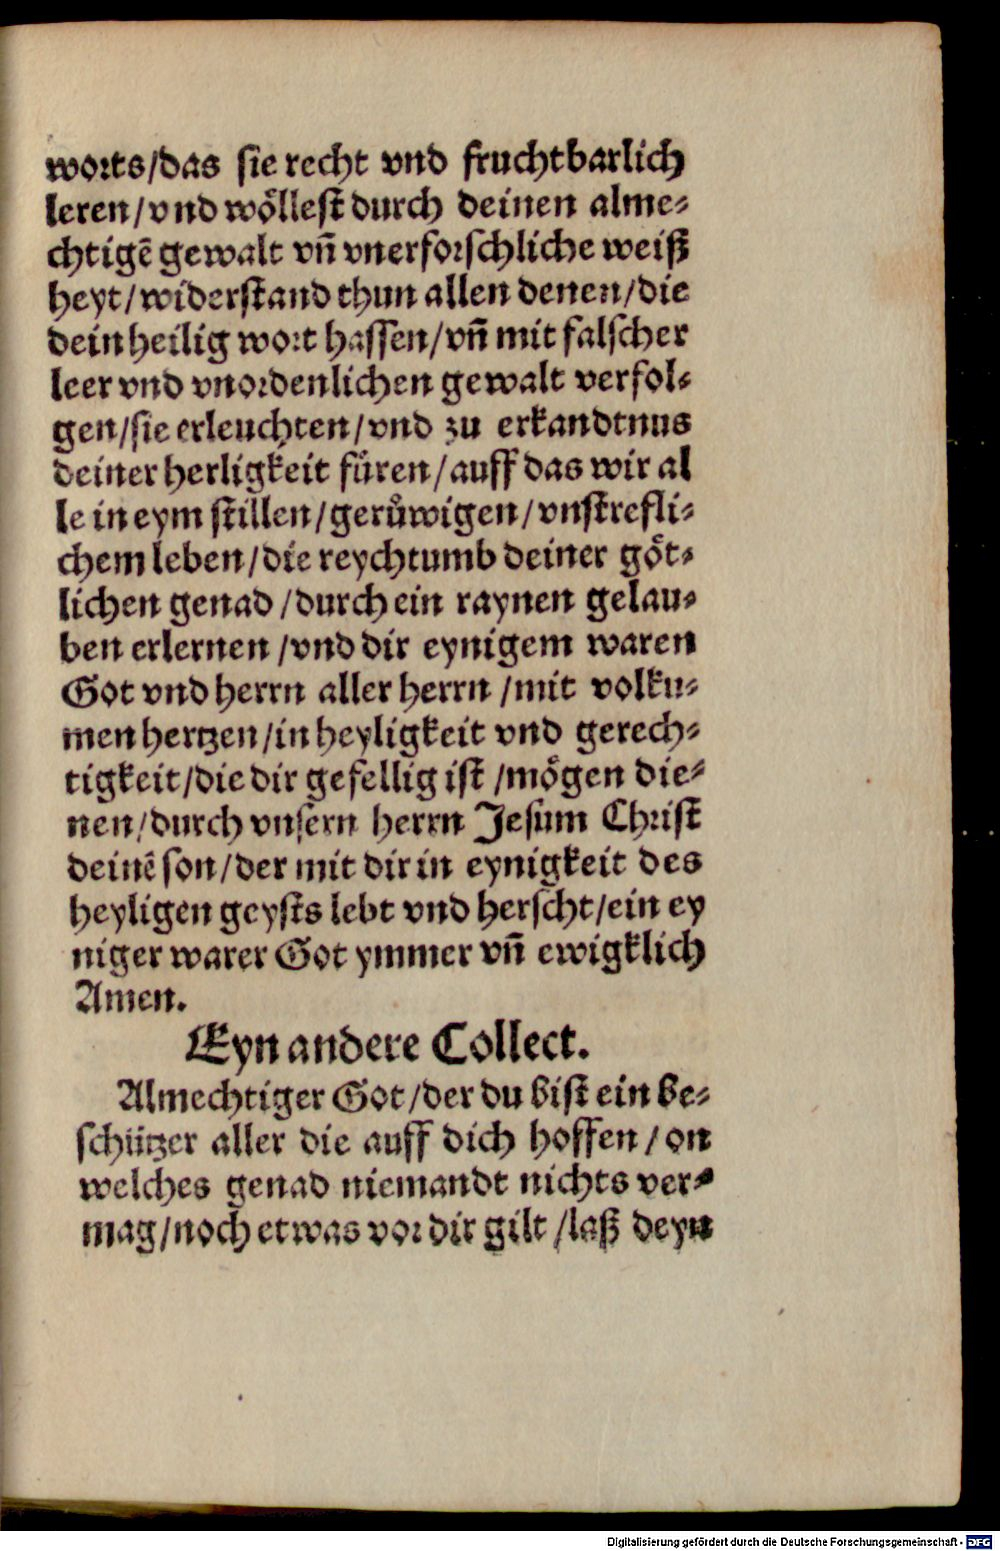 worts/das sie recht vnd fruchtbarlich
leren/vnd wöllest durch deinen alme⸗
chtigē gewalt vn̄ vnerforschliche weiß
heyt/widerstand thun allen denen/die
dein heilig wort hassen/vn̄ mit falscher
leer vnd vnordenlichen gewalt verfol⸗
gen/sie erleuchten/vnd zu erkandtnus
deiner herligkeit füren/auff das wir al
le in eym stillen/gerůwigen/vnstrefli⸗
chem leben/die reychtumb deiner göt⸗
lichen genad/durch ein raynen gelau⸗
ben erlernen/vnd dir eynigem waren
Got vnd herrn aller herrn/mit volku⸗
men hertzen/in heyligkeit vnd gerech⸗
tigkeit/die dir gefellig ist/mögen die⸗
nen/durch vnsern herrn Jesum Christ
deinē son/der mit dir in eynigkeit des
heyligen geysts lebt vnd herscht/ein ey
niger warer Got ymmer vn̄ ewigklich
Amen.
Eyn andere Collect.
Almechtiger Got/der du bist ein be⸗
schützer aller die auff dich hoffen/on
welches genad niemandt nichts ver⸗
mag/noch etwas vor dir gilt/laß deyn
Digitalisierung gefördert durch die Deutsche Forschungsgemeinschaft - DFG